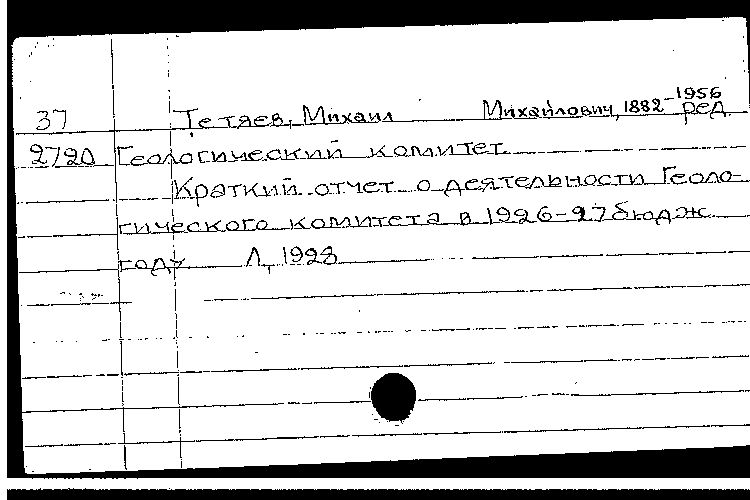 37 Тетяев, Михаил Михайлович, 1882-1956 ред.
2720 Геологический комитет
Краткий отчет о деятельности Геоло-
гического комитета в 1926-27 бюдж.
году Л, 1928